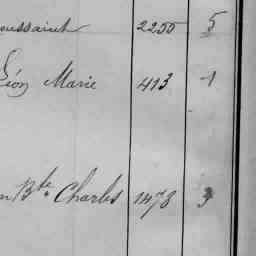 oussaint 2250 5
Léon Marie 413 1
n Bte Charles 1478 3